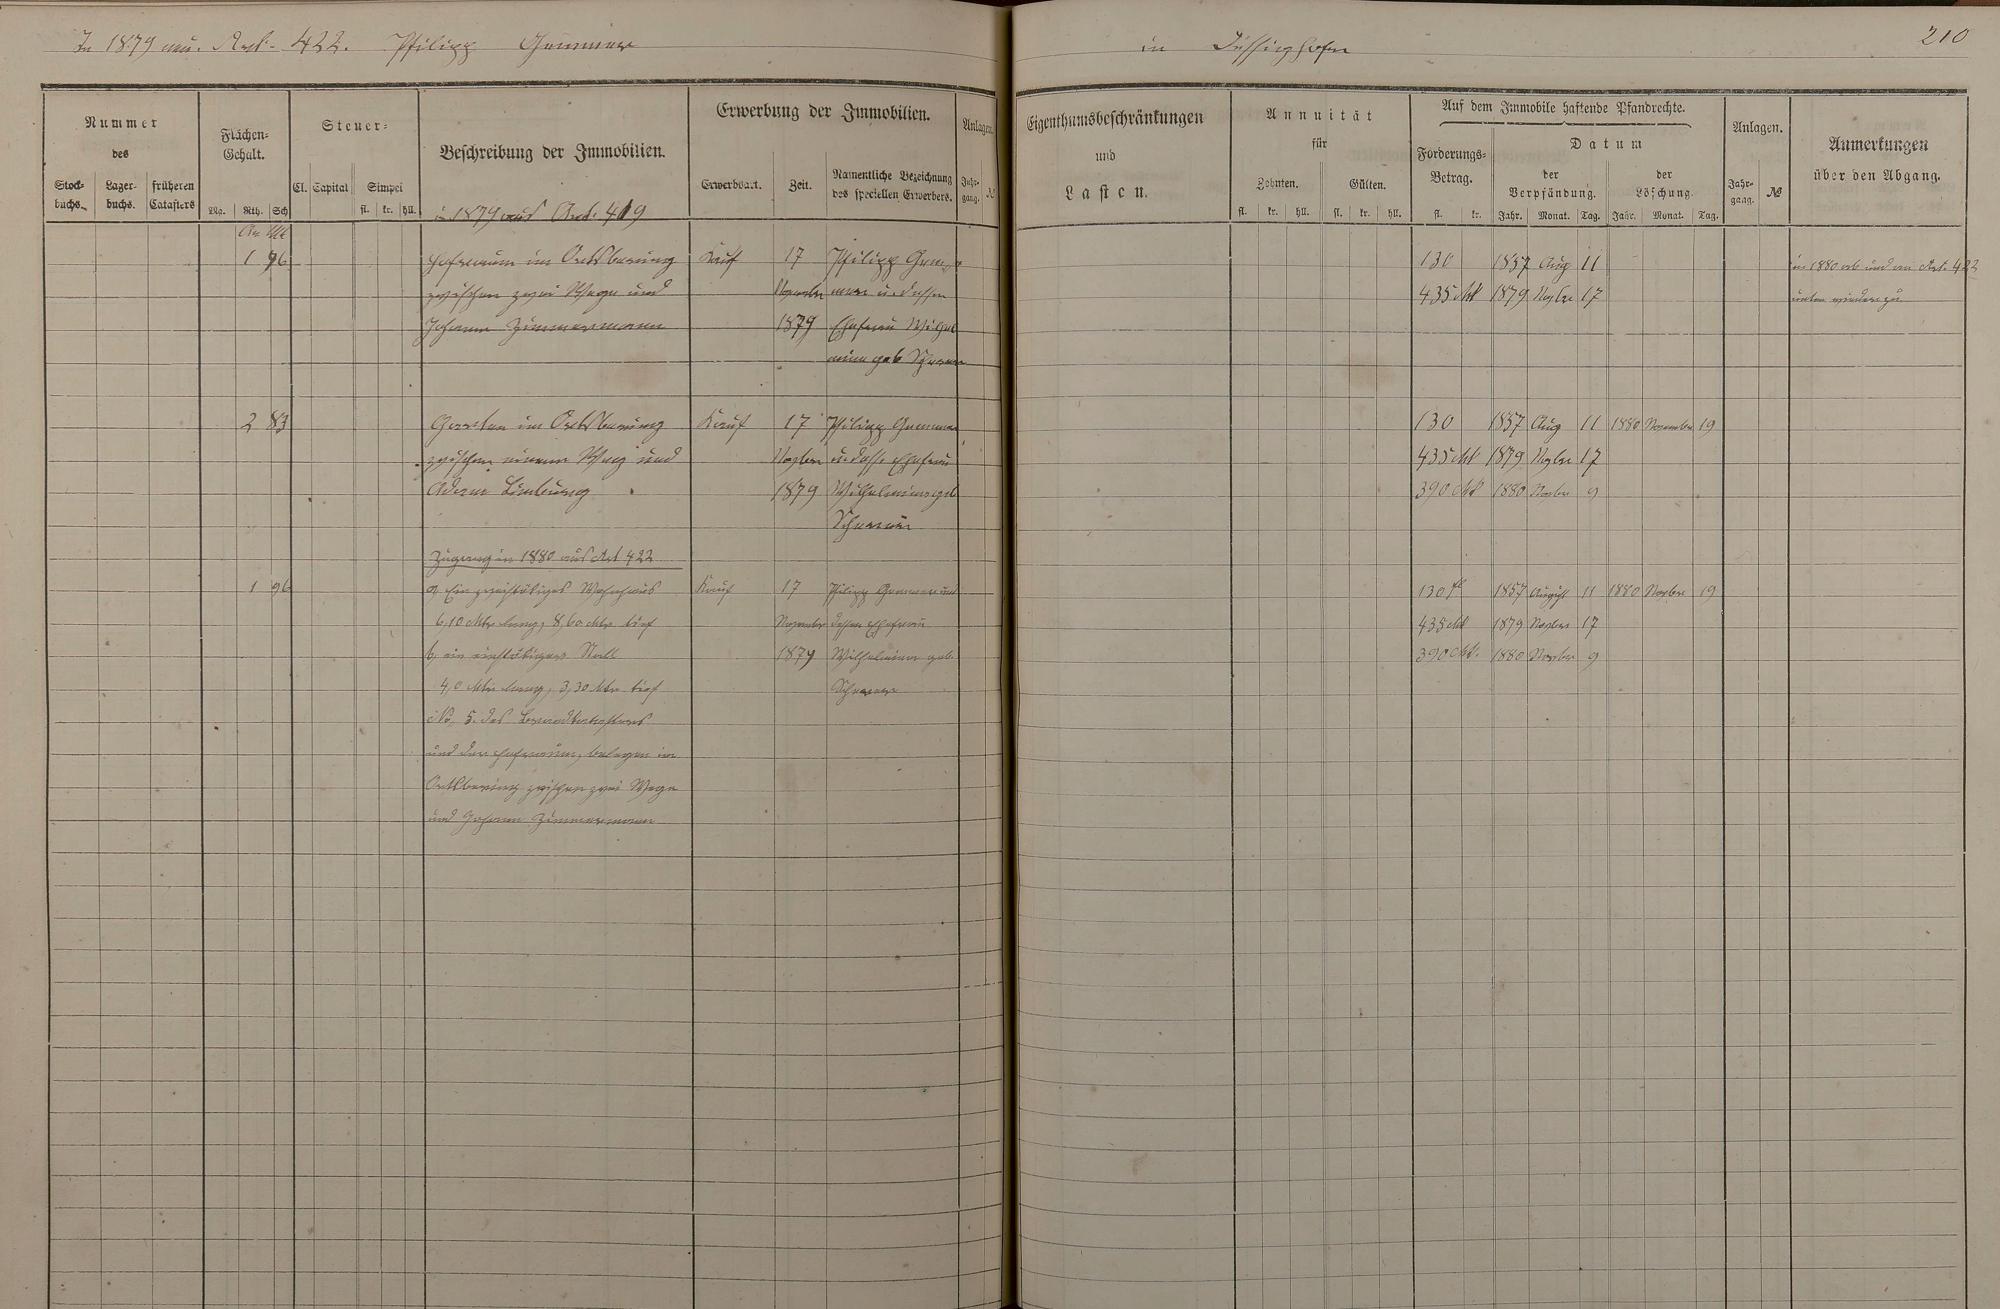 In 1879 neu. Art. 422. Philipp Gemmer
in
210
Nummer
des
Stock-
buchs.
Lager-
buchs.
früheren
Catasters
Flächen-
Gehalt.
Mg. Rth. Sch
Steuer-
Cl. Capital Simpel
fl. kr. hll.
Beschreibung der Immobilien.
in 1879 aus Art. 419
Erwerbung der Immobilien.
Erwerbsart. Zeit. Namentliche Bezeichnung
des speciellen Erwerbers.
Anlagen.
Jahr-
gang. №
Eigenthumsbeschränkungen
und
Lasten.
Annuität
für
Zehnten. Gülten.
fl. kr. hll. fl. kr. hll.
Auf dem Immobile haftende Pfandrechte.
Forderungs-
Betrag.
fl. kr.
Datum
der
Verpfändung.
Jahr. Monat. Tag.
der
Löschung.
Jahr. Monat. Tag.
Anlagen.
Jahr-
gang. №
Anmerkungen
über den Abgang.
1 96 Hofraum im Ortsbering Kauf 17 Philipp Gem- 130 1857 Aug 11 in 1880 ab und in Art. 422
zwischen zwei Wege und November mer u. dessen 435 Mk 1879 Novbr 17 unten wieder zu
Johann Zimmermann 1879 Ehefrau Wilhel
mine geb
2 83 Garten im Ortsbering Kauf 17 Philipp Gemmer 130 1857 Aug 11 1880 November 19
zwischen einem Weg und Novbr u. dess. Ehefrau 435 Mk 1879 Novbr 17
Adam Limburg 1879 Wilhelmine geb 390 Mk 1880 Novbr 9
Zugang in 1880 aus Art 422
1 96 a, Ein zweistöckiges Wohnhaus Kauf 17 Philipp Gemmer und 130 fl 1857 August 11 1880 Novbr 19
6,10 Mtr lang, 8,60 Mtr tief November dessen Ehefrau 435 Mk 1879 Novbr 17
b, ein einstöckiger Stall 1879 Wilhelmine geb. 390 Mk. 1880 Novbr 9
4,0 Mtr lang, 3,30 Mtr tief
No. 5. des Brandkatasters
und der Hofraum, belegen im
Ortsbering zwischen zwei Wege
und Johann Zimmermann